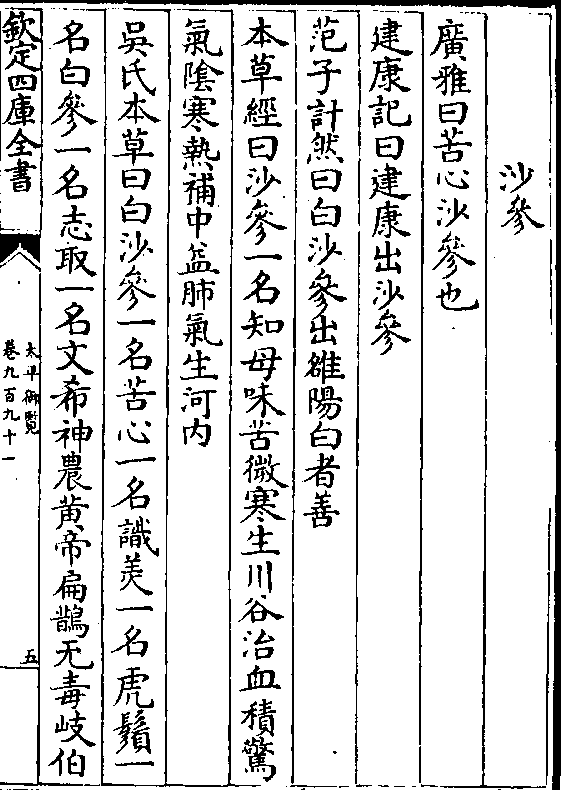 沙參
廣雅曰苦心沙參也
建康記曰建康出沙參
范子計然曰白沙參出雒陽白者善
本草經曰沙參一名知母味苦微寒生川谷治血積驚
氣隂寒熱補中益肺氣生河内
吳氏本草曰白沙參一名苦心一名識羙一名虎鬚一
名白參一名志取一名文希神農黄帝扁鵲无毒岐伯
欽定四庫全書
太平御覽
卷九百九十一
五